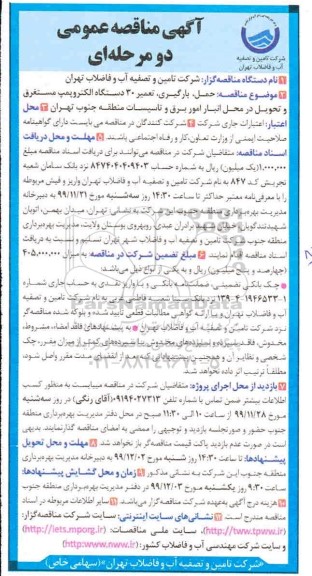 شرکت تامین و تصفیه
آب و فاضلاب تهران
آگهی مناقصه عمومی
دو مرحله‌ای
۱ نام دستگاه مناقصه‌گزار: شرکت تامین و تصفیه آب و فاضلاب تهران
۲ موضوع مناقصه: حمل، بارگیری، تعمیر ۳۰ دستگاه الکتروپمپ مستغرق
و تحویل در محل انبار امور برق و تاسیسات منطقه جنوب تهران ۳ محل
اعتبار: اعتبارات جاری شرکت ۴ شرکت کنندگان در مناقصه می بایست دارای گواهینامه
صلاحیت ایمنی از وزارت تعاون، کار و رفاه اجتماعی باشند ۵ مهلت و محل دریافت
اسناد مناقصه: متقاضیان شرکت در مناقصه می‌توانند برای دریافت اسناد مناقصه مبلغ
۱,۰۰۰,۰۰۰ (یک میلیون) ریال به شماره حساب ۸۴۷۴۰۴۰۴۰۹۴۰۳ نزد بانک سامان شعبه
تحریش کد ۸۴۷ به نام شرکت تامین و تصفیه آب و فاضلاب تهران واریز و فیش مربوطه
را با معرفی‌نامه معتبر حداکثر تا ساعت ۱۴:۳۰ روز سه‌شنبه مورخ ۹۹/۱۱/۲۱ به دبیرخانه
مدیریت بهره‌برداری منطقه جنوب این شرکت به نشانی تهران، میدان بهمن، اتوبان
شهید تندگویان، خیابان شهید برادران عبدی، روبروی بوستان ولایت، مدیریت بهره‌برداری
منطقه جنوب شرکت تامین و تصفیه آب و فاضلاب شهر تهران تسلیم و نسبت به دریافت
اسناد مناقصه اقدام نمایند. ۶ مبلغ تضمین شرکت در مناقصه به میزان ۴۰۵,۰۰۰,۰۰۰
(چهارصد و پنج میلیون) ریال و به یکی از انواع ذیل می‌باشد:
چک بانکی تضمینی، ضمانتنامه بانکی و یا واریز نقدی به حساب جاری شماره
نزد بانک به نام شرکت تامین و تصفیه
آب و فاضلاب تهران و یا ارائه گواهی مطالبات قطعی تایید شده و بلوکه شده مناقصه گر
نزد شرکت تامین و تصفیه آب و فاضلاب تهران به پیشنهادهای فاقد امضاء، مشروط،
مخدوش، فاقد سپرده و سپرده‌های مخدوش یا سپرده‌های کمتر از میزان مقرر، چک
شخصی و نظایر آن و همچنین پیشنهاداتی که بعد از انقضای مدت مقرر واصل شود،
مطلقاً ترتیب اثر داده نخواهد شد.
۷ بازدید از محل اجرای پروژه: متقاضیان شرکت در مناقصه میبایست به منظور کسب
اطلاعات بیشتر ضمن تماس با شماره تلفن ۰۹۱۹۴۰۲۷۳۱۳ (آقای رنگی) در روز سه‌شنبه
مورخ ۹۹/۱۱/۲۸ از ساعت ۱۰ الی ۱۱:۳۰ صبح در محل دفتر مدیریت بهره‌برداری منطقه
جنوب حضور و صورتجلسه بازدید و توجیهی را ممضی به امضای مناقصه گذار نمایند. بدیهی
است در صورت عدم بازدید پاکت قیمت مناقصه‌گر باز نخواهد شد ۸ مهلت و محل تحویل
پیشنهادها: تا ساعت ۱۴:۳۰ روز شنبه مورخ ۹۹/۱۲/۰۲ به دبیرخانه مدیریت بهره‌برداری
منطقه جنوب این شرکت به نشانی مذکور ۹ زمان و محل گشایش پیشنهادها:
ساعت ۹:۳۰ روز یکشنبه مورخ ۹۹/۱۲/۰۳ در دفتر مدیریت بهره‌برداری منطقه جنوب
۱۰ هزینه درج آگهی به‌عهده شرکت مناقصه‌گزار می‌باشد ۱۱ سایر اطلاعات مربوطه در اسناد
مناقصه مندرج است ۱۲ نشانی‌های سایت اینترنتی: سایت شرکت مناقصه‌گزار:
(http://www.tpww.ir)، سایت ملی مناقصات: (http://iets.mporg.ir)
و سایت شرکت مهندسی آب و فاضلاب کشور: (http://www.nww.ir)
«شرکت تامین و تصفیه آب و فاضلاب تهران» (سهامی خاص)